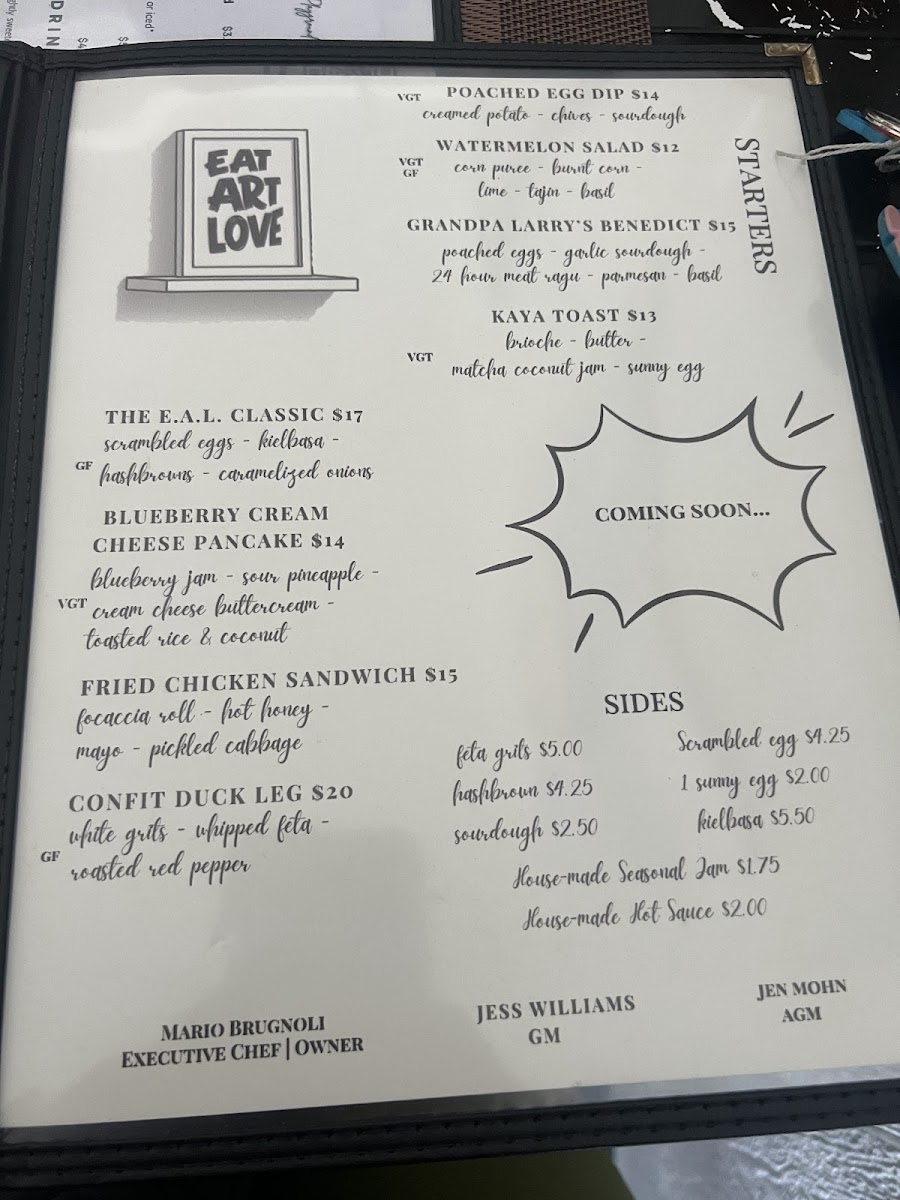 or iced"
DRIN
EAT
ART
LOVE
STARTERS
VGT POACHED EGG DIP $14
creamed potato - chives - sourdough
WATERMELON SALAD $12
VGT
GF
corn puree - burnt corn -
lime - tajin - basil
GRANDPA LARRY'S BENEDICT $15
poached eggs - garlic sourdough -
24 hour meat ragu - parmesan - basil
KAYA TOAST $13
brioche - butter -
VGT
matcha coconut jam - sunny egg
THE E.A.L. CLASSIC $17
scrambled eggs - kielbasa -
GF hashbrowns - caramelized onions
BLUEBERRY CREAM
CHEESE PANCAKE $14
blueberry jam - sour pineapple -
VGT cream cheese buttercream -
toasted rice & coconut
FRIED CHICKEN SANDWICH $15
focaccia roll - hot honey -
mayo - pickled cabbage
CONFIT DUCK LEG $20
white grits - whipped feta -
GF roasted red pepper
COMING SOON...
SIDES
feta grits $5.00
hashbrown $4.25
sourdough $2.50
Scrambled egg $4.25
1 sunny egg $2.00
kielbasa $5.50
House-made Seasonal Jam $1.75
House-made Hot Sauce $2.00
MARIO BRUGNOLI
EXECUTIVE CHEF | OWNER
JESS WILLIAMS
GM
JEN MOHN
AGM